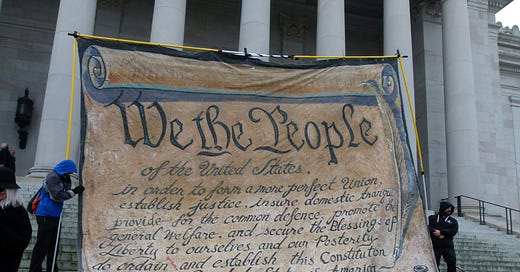 We the People
of the United States,
in order to form a more perfect Union,
establish justice, insure domestic tranqui
provide for the common defence, promote the
general Welfare, and secure the Blessings of
Liberty to ourselves and our Posterity
do ordain and establish this Constitution
America